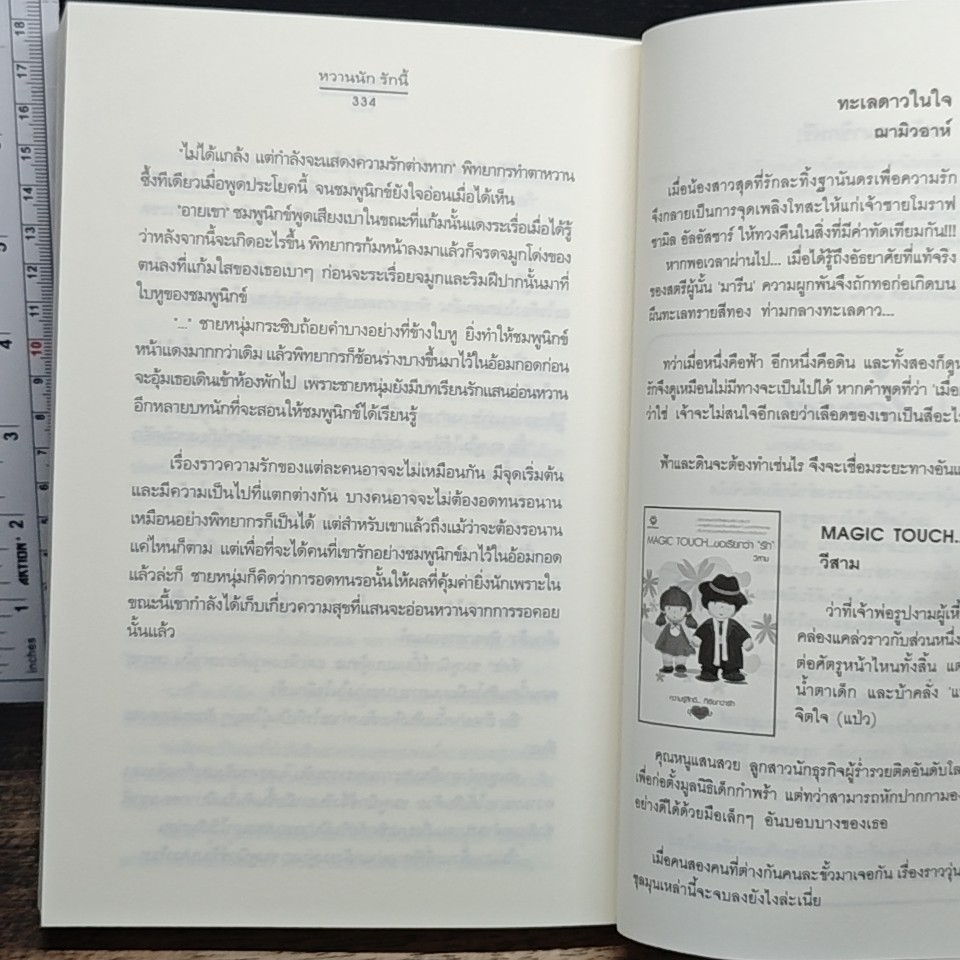 หวานนัก รักนี้
334
"ไม่ได้แกล้ง แต่กำลังจะแสดงความรักต่างหาก" พิทยากรทำตาหวาน
ซึ้งทีเดียวเมื่อพูดประโยคนี้ จนชมพูนิกข์ยังใจอ่อนเมื่อได้เห็น
"อายเขา" ชมพูนิกข์พูดเสียงเบาในขณะที่แก้มนั้นแดงระเรื่อเมื่อได้รู้
ว่าหลังจากนี้จะเกิดอะไรขึ้น พิทยากรก้มหน้าลงมาแล้วก็จรดจมูกโด่งของ
ตนลงที่แก้มใสของเธอเบาๆ ก่อนจะระเรื่อยจมูกและริมฝีปากนั้นมาที่
ใบหูของชมพูนิกข์
"..." ชายหนุ่มกระซิบถ้อยคำบางอย่างที่ข้างใบหู ยิ่งทำให้ชมพูนิกข์
หน้าแดงมากกว่าเดิม แล้วพิทยากรก็ช้อนร่างบางขึ้นมาไว้ในอ้อมกอดก่อน
จะอุ้มเธอเดินเข้าห้องพักไป เพราะชายหนุ่มยังมีบทเรียนรักแสนอ่อนหวาน
อีกหลายบทนักที่จะสอนให้ชมพูนิกข์ได้เรียนรู้
เรื่องราวความรักของแต่ละคนอาจจะไม่เหมือนกัน มีจุดเริ่มต้น
และมีความเป็นไปที่แตกต่างกัน บางคนอาจจะไม่ต้องอดทนรอนาน
เหมือนอย่างพิทยากรก็เป็นได้ แต่สำหรับเขาแล้วถึงแม้ว่าจะต้องรอนาน
แค่ไหนก็ตาม แต่เพื่อที่จะได้คนที่เขารักอย่างชมพูนิกข์มาไว้ในอ้อมกอด
แล้วล่ะก็ ชายหนุ่มก็คิดว่าการอดทนรอนั้นให้ผลที่คุ้มค่ายิ่งนักเพราะใน
ขณะนี้เขากำลังได้เก็บเกี่ยวความสุขที่แสนจะอ่อนหวานจากการรอคอย
นั้นแล้ว
ทะเลดาวในใจ
ฌามิวอาห์
เมื่อน้องสาวสุดที่รักละทิ้งฐานันดรเพื่อความรัก
จึงกลายเป็นการจุดเพลิงโทสะให้แก่เจ้าชายโมราฟ
ชามิล อัลอัสซาร์ ให้ทวงคืนในสิ่งที่มีค่าทัดเทียมกัน!!!
หากพอเวลาผ่านไป... เมื่อได้รู้ถึงอัธยาศัยที่แท้จริง
ของสตรีผู้นั้น 'มารีน' ความผูกพันจึงถักทอก่อเกิดบน
ผืนทะเลทรายสีทอง ท่ามกลางทะเลดาว...
ทว่าเมื่อหนึ่งคือฟ้า อีกหนึ่งคือดิน และทั้งสองก็ดู
รักจึงดูเหมือนไม่มีทางจะเป็นไปได้ หากคำพูดที่ว่า 'เมื่อ
ว่าใช่ เจ้าจะไม่สนใจอีกเลยว่าเลือดของเขาเป็นสีอะไ
ฟ้าและดินจะต้องทำเช่นไร จึงจะเชื่อมระยะทางอัน
MAGIC TOUCH...ขอเรียกว่า "รัก"
วีสาม
MAGIC TOUCH..
วีสาม
ว่าที่เจ้าพ่อรูปงามผู้เหี้
คล่องแคล่วราวกับส่วนหนึ่ง
ต่อศัตรูหน้าไหนทั้งสิ้น แต่
น้ำตาเด็ก และบ้าคลั่ง
จิตใจ (แป่ว)
คุณหนูแสนสวย ลูกสาวนักธุรกิจผู้ร่ำรวยติดอันดับโล
เพื่อก่อตั้งมูลนิธิเด็กกำพร้า แต่ทว่าสามารถหักปากกามอง
อย่างดีได้ด้วยมือเล็กๆ อันบอบบางของเธอ
เมื่อคนสองคนที่ต่างกันคนละขั้วมาเจอกัน เรื่องราววุ่น
ชุลมุนเหล่านี้จะจบลงยังไงล่ะเนี่ย